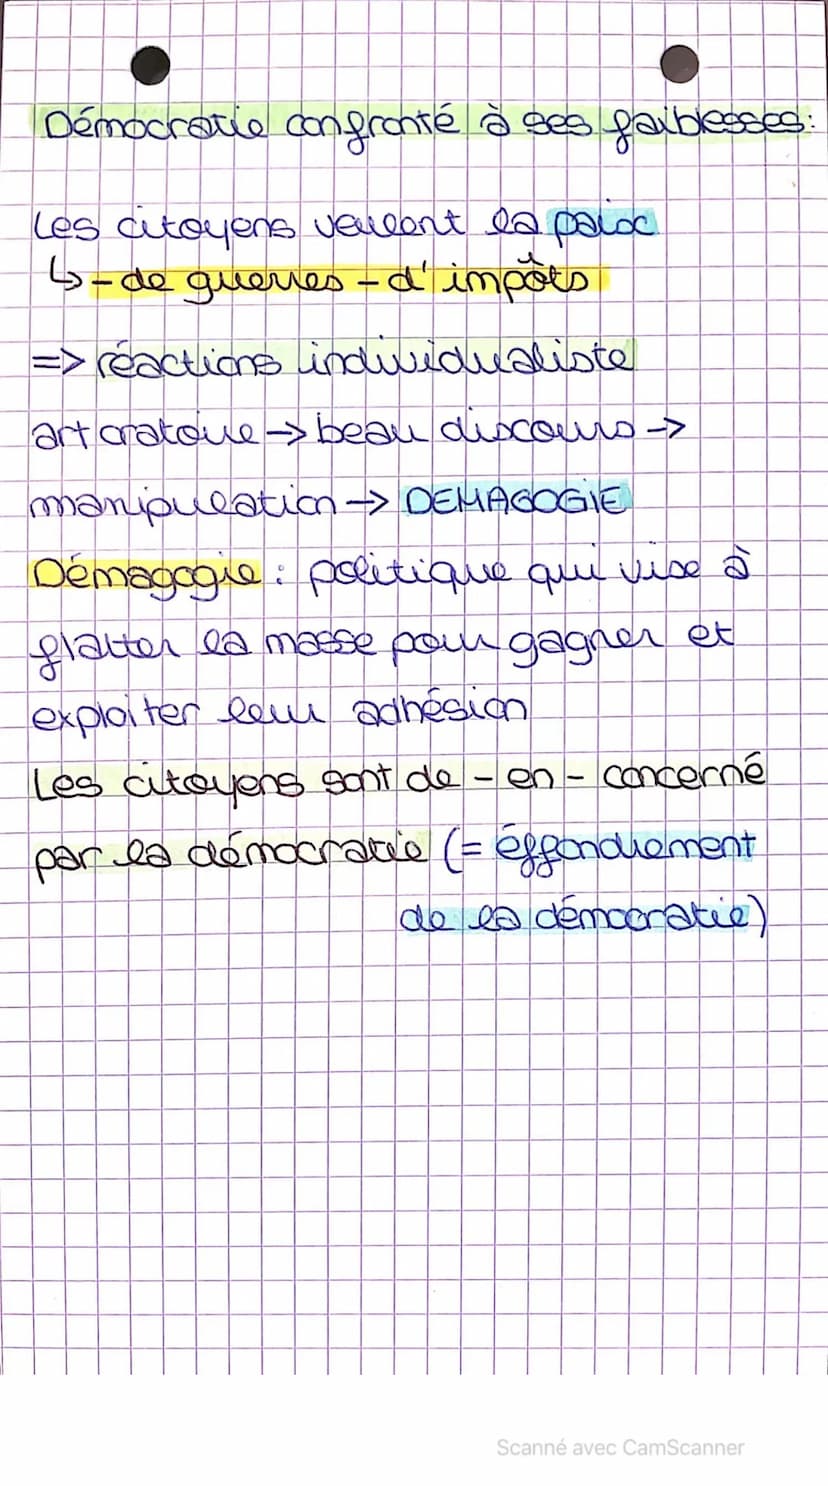 Démocratie confronté à ses faiblesses:
Les citoyens veulent la paix
↳ - de guerres - d'impôts
=> réactions individualiste
art oratoire -> beau discours ->
manipulation -> DEMAGOGIE
Démagogie : politique qui vise à
flatter la masse pour gagner et
exploiter leur adhésion
Les citoyens sont de - en - concerné
par la démocratie (= éffondrement
de la démocratie)
Scanné avec CamScanner